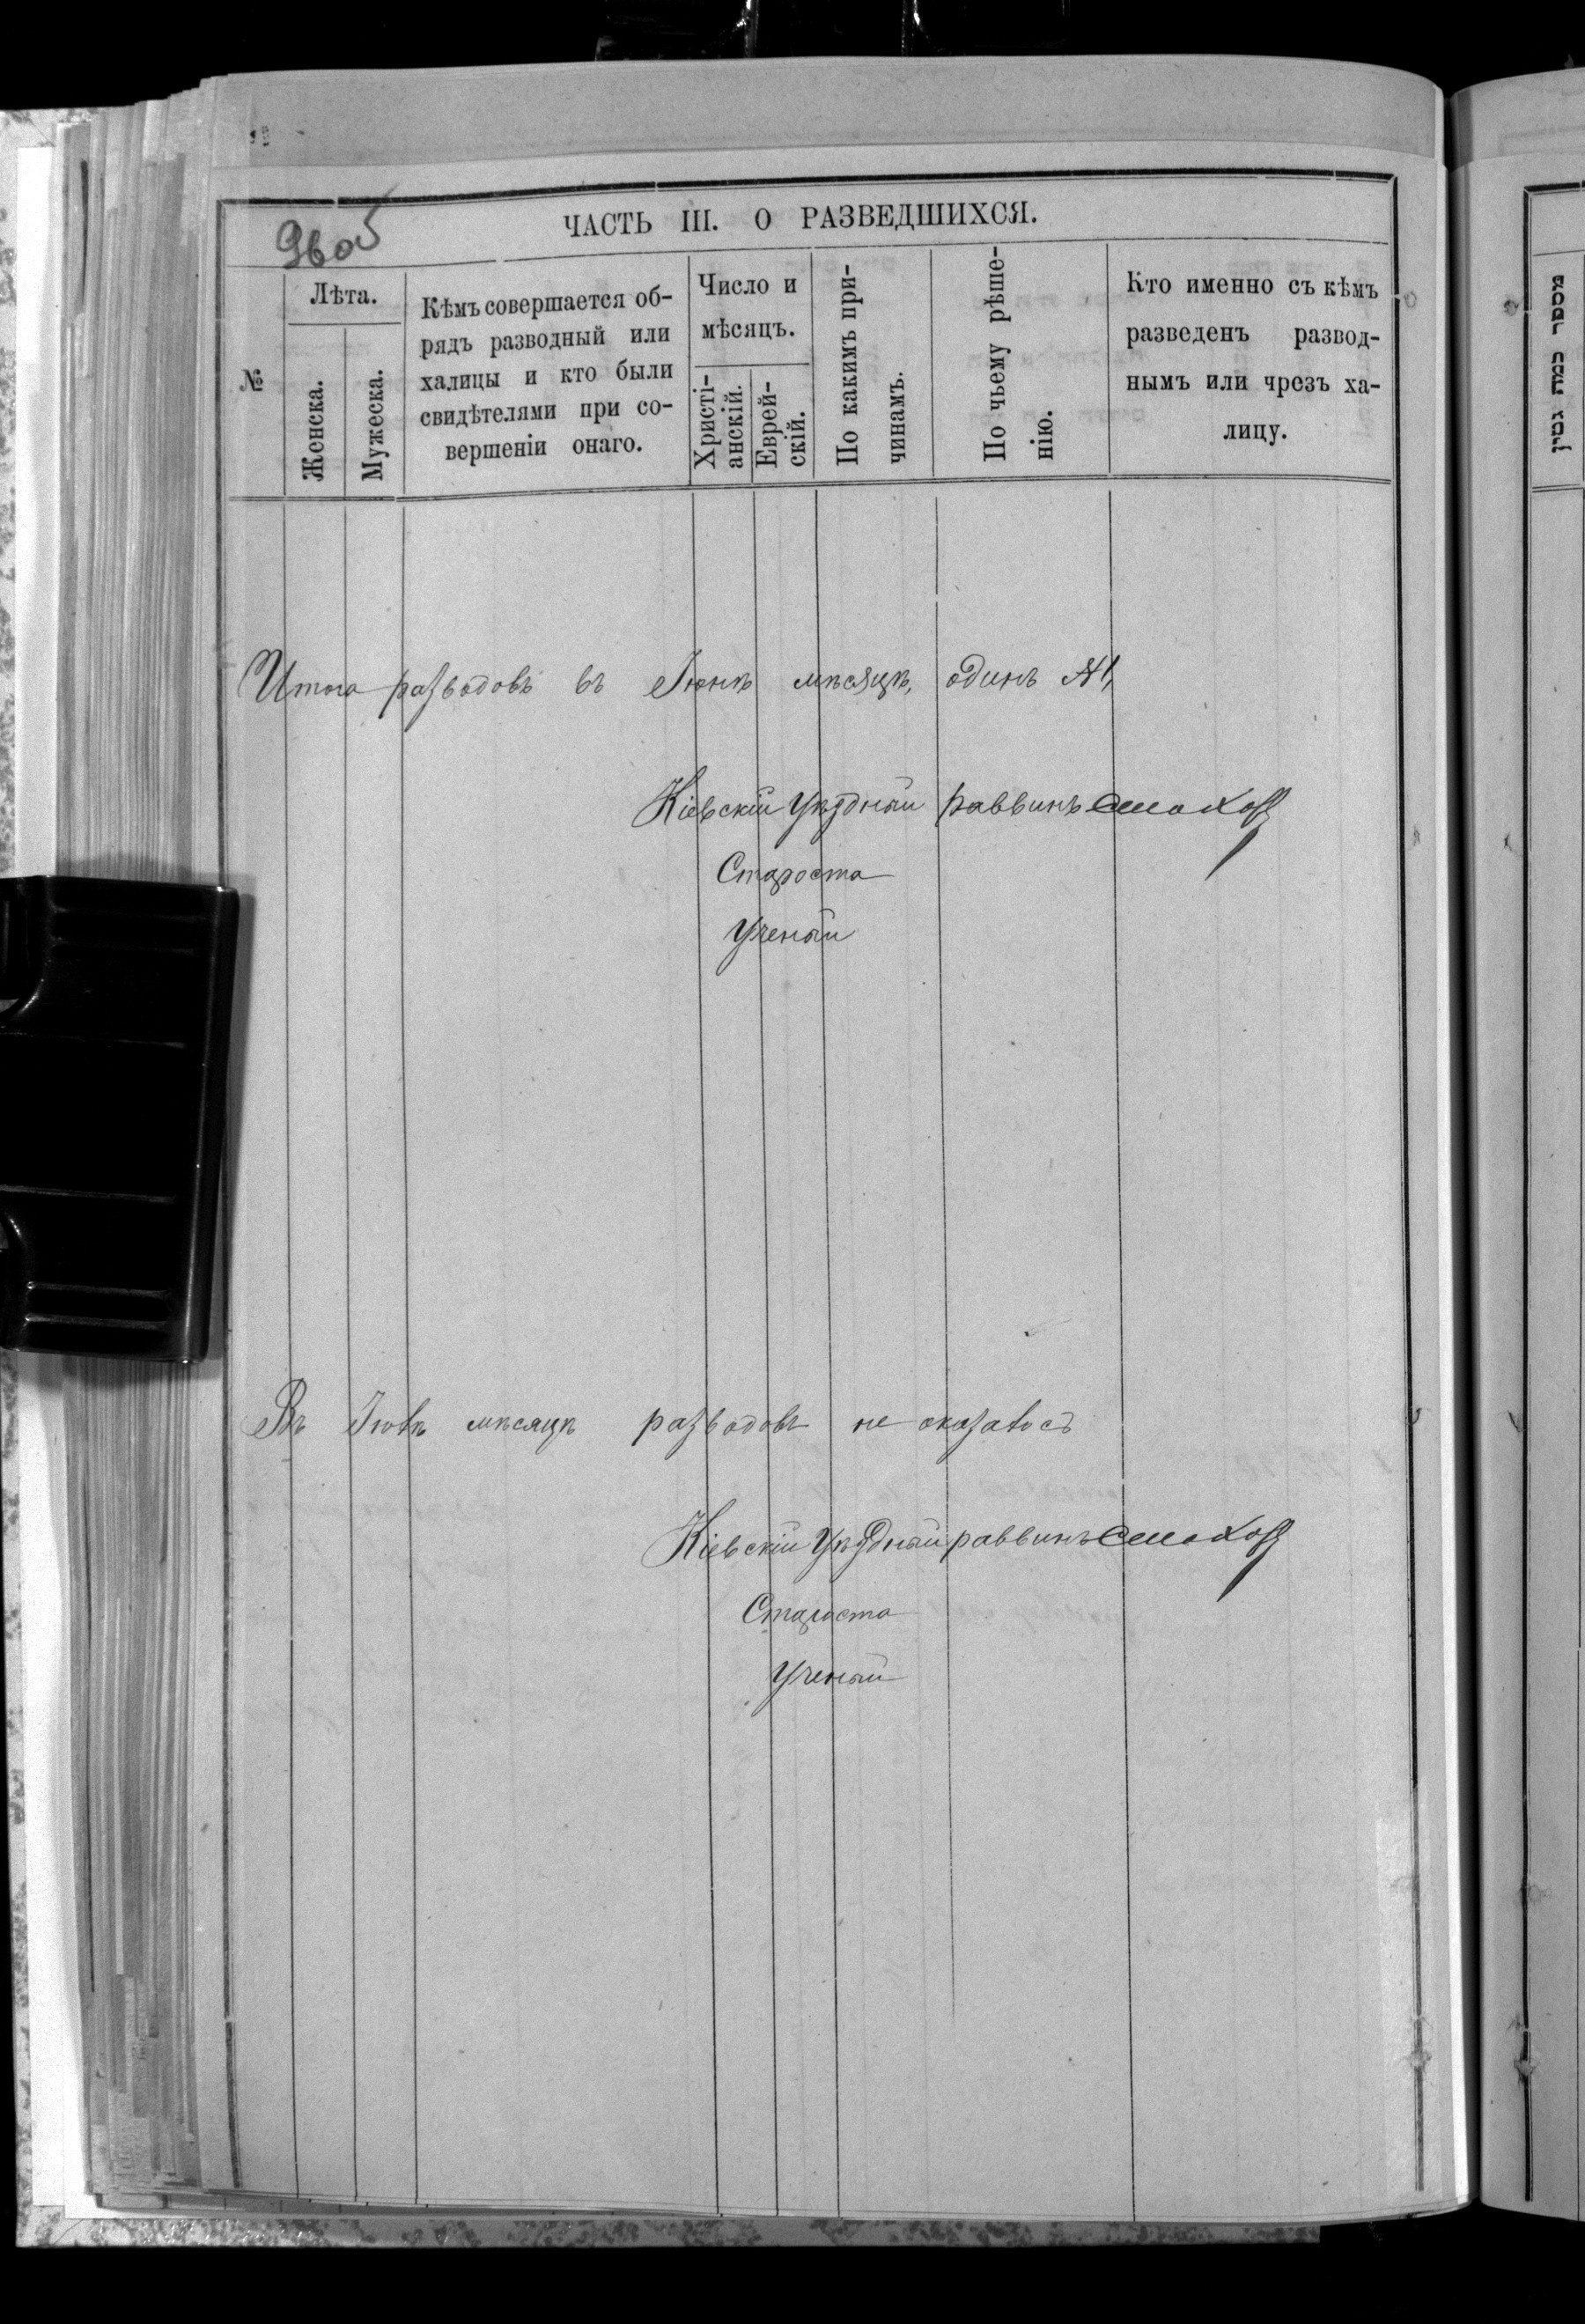 ЧАСТЬ III. О РАЗВЕДШИХСЯ.
№
Лѣта.
Женска.
Мужеска.
Кѣмъ совершается об-
рядъ разводный или
халицы и кто были
свидѣтелями при со-
вершеніи онаго.
Число и
мѣсяцъ.
Христі-
анскій.
Еврей-
скій.
По какимъ при-
чинамъ.
По чьему рѣше-
нію.
Кто именно съ кѣмъ
разведенъ развод-
нымъ или чрезъ ха-
лицу.
Итого разводовъ въ Іюнѣ мѣсяцѣ, одинъ №1,
Кіевскій Уѣздный раввинъ
Староста
Ученый
Въ Іюлѣ мѣсяцѣ разводовъ не оказалось
Кіевскій Уѣздный раввинъ
Староста
Ученый
מספר כמה גטין